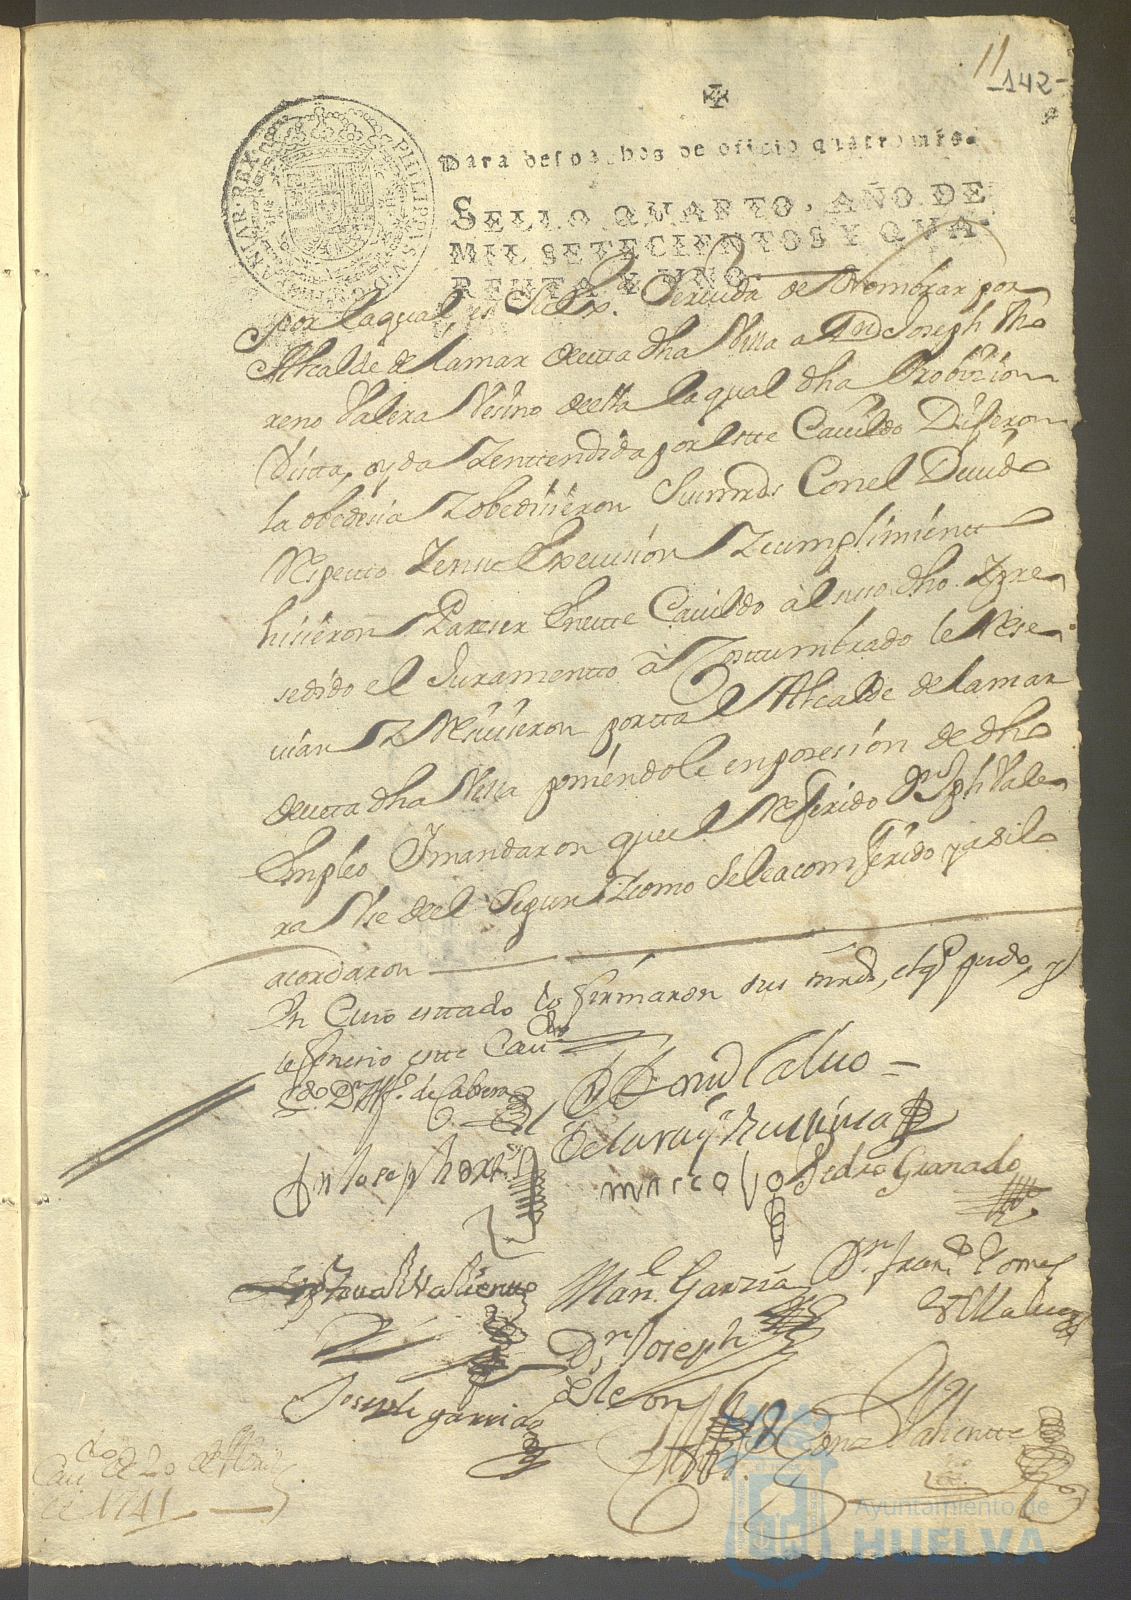 11
142
Para despachos de oficio quatro mrs.
SELLO QVARTO, AÑO DE
MIL SETECIENTOS Y QVA-
RENTA Y VNO.
PHILIPPUS V D G HISPANIAR REX
por laqual es Su Ex. Servida de Nombrar por
Alcalde de lamar deesta dha Villa a Dn Joseph
reno Valera Vesino deella laqual dha Probizion
vista, oyda Y enttendida por este Cavildo Dijeron
la obedesia Y obedesieron Sus mrds Conel Devido
Respecto Y ensu Execusion Y cumplimientto
hisieron Pareser En este Cavildo al suso dho Y pre
sedido el Juramentto acosttumbrado le Rese
vian Y Resivieron por tal Alcalde de lamar
deesta dha Villa poniendole en posesion de dho
Empleo Y mandaron que el Referido Dn Jph Vale
ra Use deel Segun Y como se le a conferido y asi lo
acordaron
En Cuio esttado lo firmaron sus mrds, el q pudo, y
se fenesio este Cavdo
Ldo Dn de Cabrera
Calvo
Marcos
Pedro Granado
Cristoval Valiente
Manl Garzia
Dn Franco Gomes
Dn Joseph
de leon
Joseph garrido
Valiente
Cavdo de 20 de
de 1741
Ayuntamiento de
HUELVA